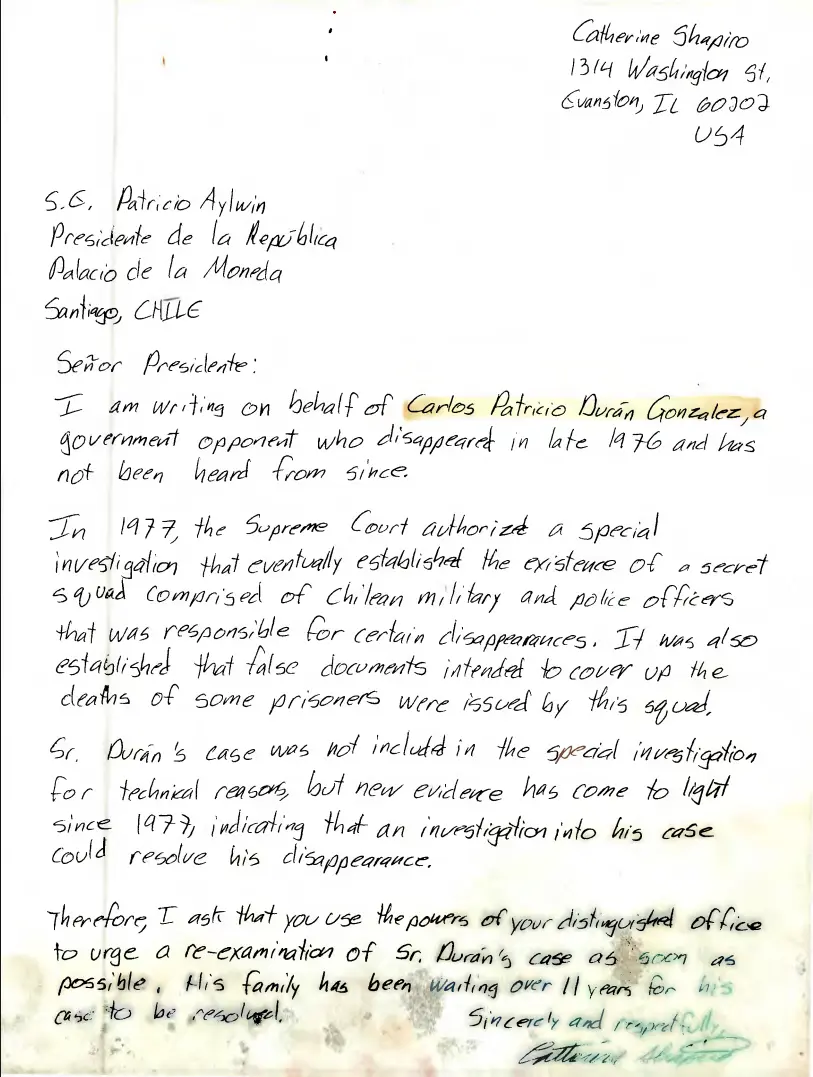 Catherine Shapiro
1314 Washington St,
Evanston, IL 60202
USA
S.E. Patricio Aylwin
Presidente de la República
Palacio de la Moneda
Santiago, CHILE
Señor Presidente:
I am writing on behalf of Carlos Patricio Durán Gonzalez, a
government opponent who disappeared in late 1976 and has
not been heard from since.
In 1977, the Supreme Court authorized a special
investigation that eventually established the existence of a secret
squad comprised of Chilean military and police officers
that was responsible for certain disappearances. It was also
established that false documents intended to cover up the
deaths of some prisoners were issued by this squad.
Sr. Durán's case was not included in the special investigation
for technical reasons, but new evidence has come to light
since 1977, indicating that an investigation into his case
could resolve his disappearance.
Therefore, I ask that you use the powers of your distinguished office
to urge a re-examination of Sr. Durán's case as soon as
possible. His family has been waiting over 11 years for his
case to be resolved.
Sincerely and respectfully,
Catherine Shapiro